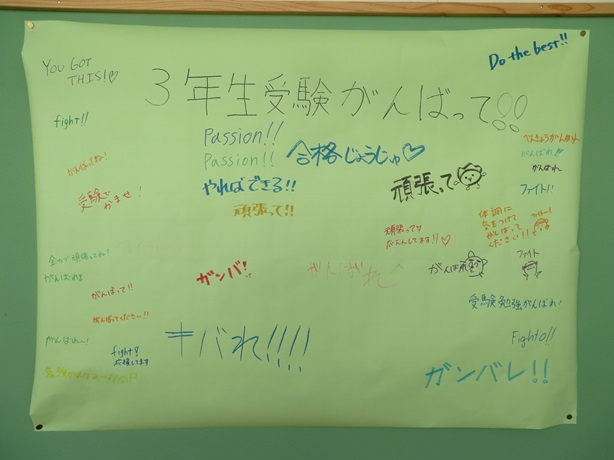 YOU GOT
THIS!♡
Do the best!!
3年生受験がんばって!!
fight!!
Passion!!
Passion!!
合格じょうじゅ♡
がんばれ
やればできる!!
頑張って
ファイト!!
頑張って!!
頑張って♡
応えんしてます!!♡
体調に
気をつけて
がんばって
ください!!
ガンバ!
がんばれ
がんばれ
ファイト
がんばって!!
がんばってください!!
受験勉強がんばれ!
キバれ!!!!
がんばれー!
fight!
応援してます
Fight!!
ガンバレ!!